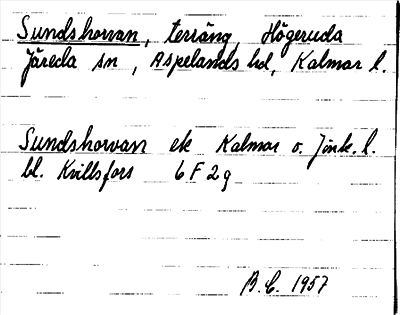 Sundshorvan, terräng, Högeruda
Järeda sn, Aspelands hd, Kalmar l.
Sundshorvan ek Kalmar o. Jönk. l.
bl. Kvillsfors 6 F 2 g
B.E. 1957